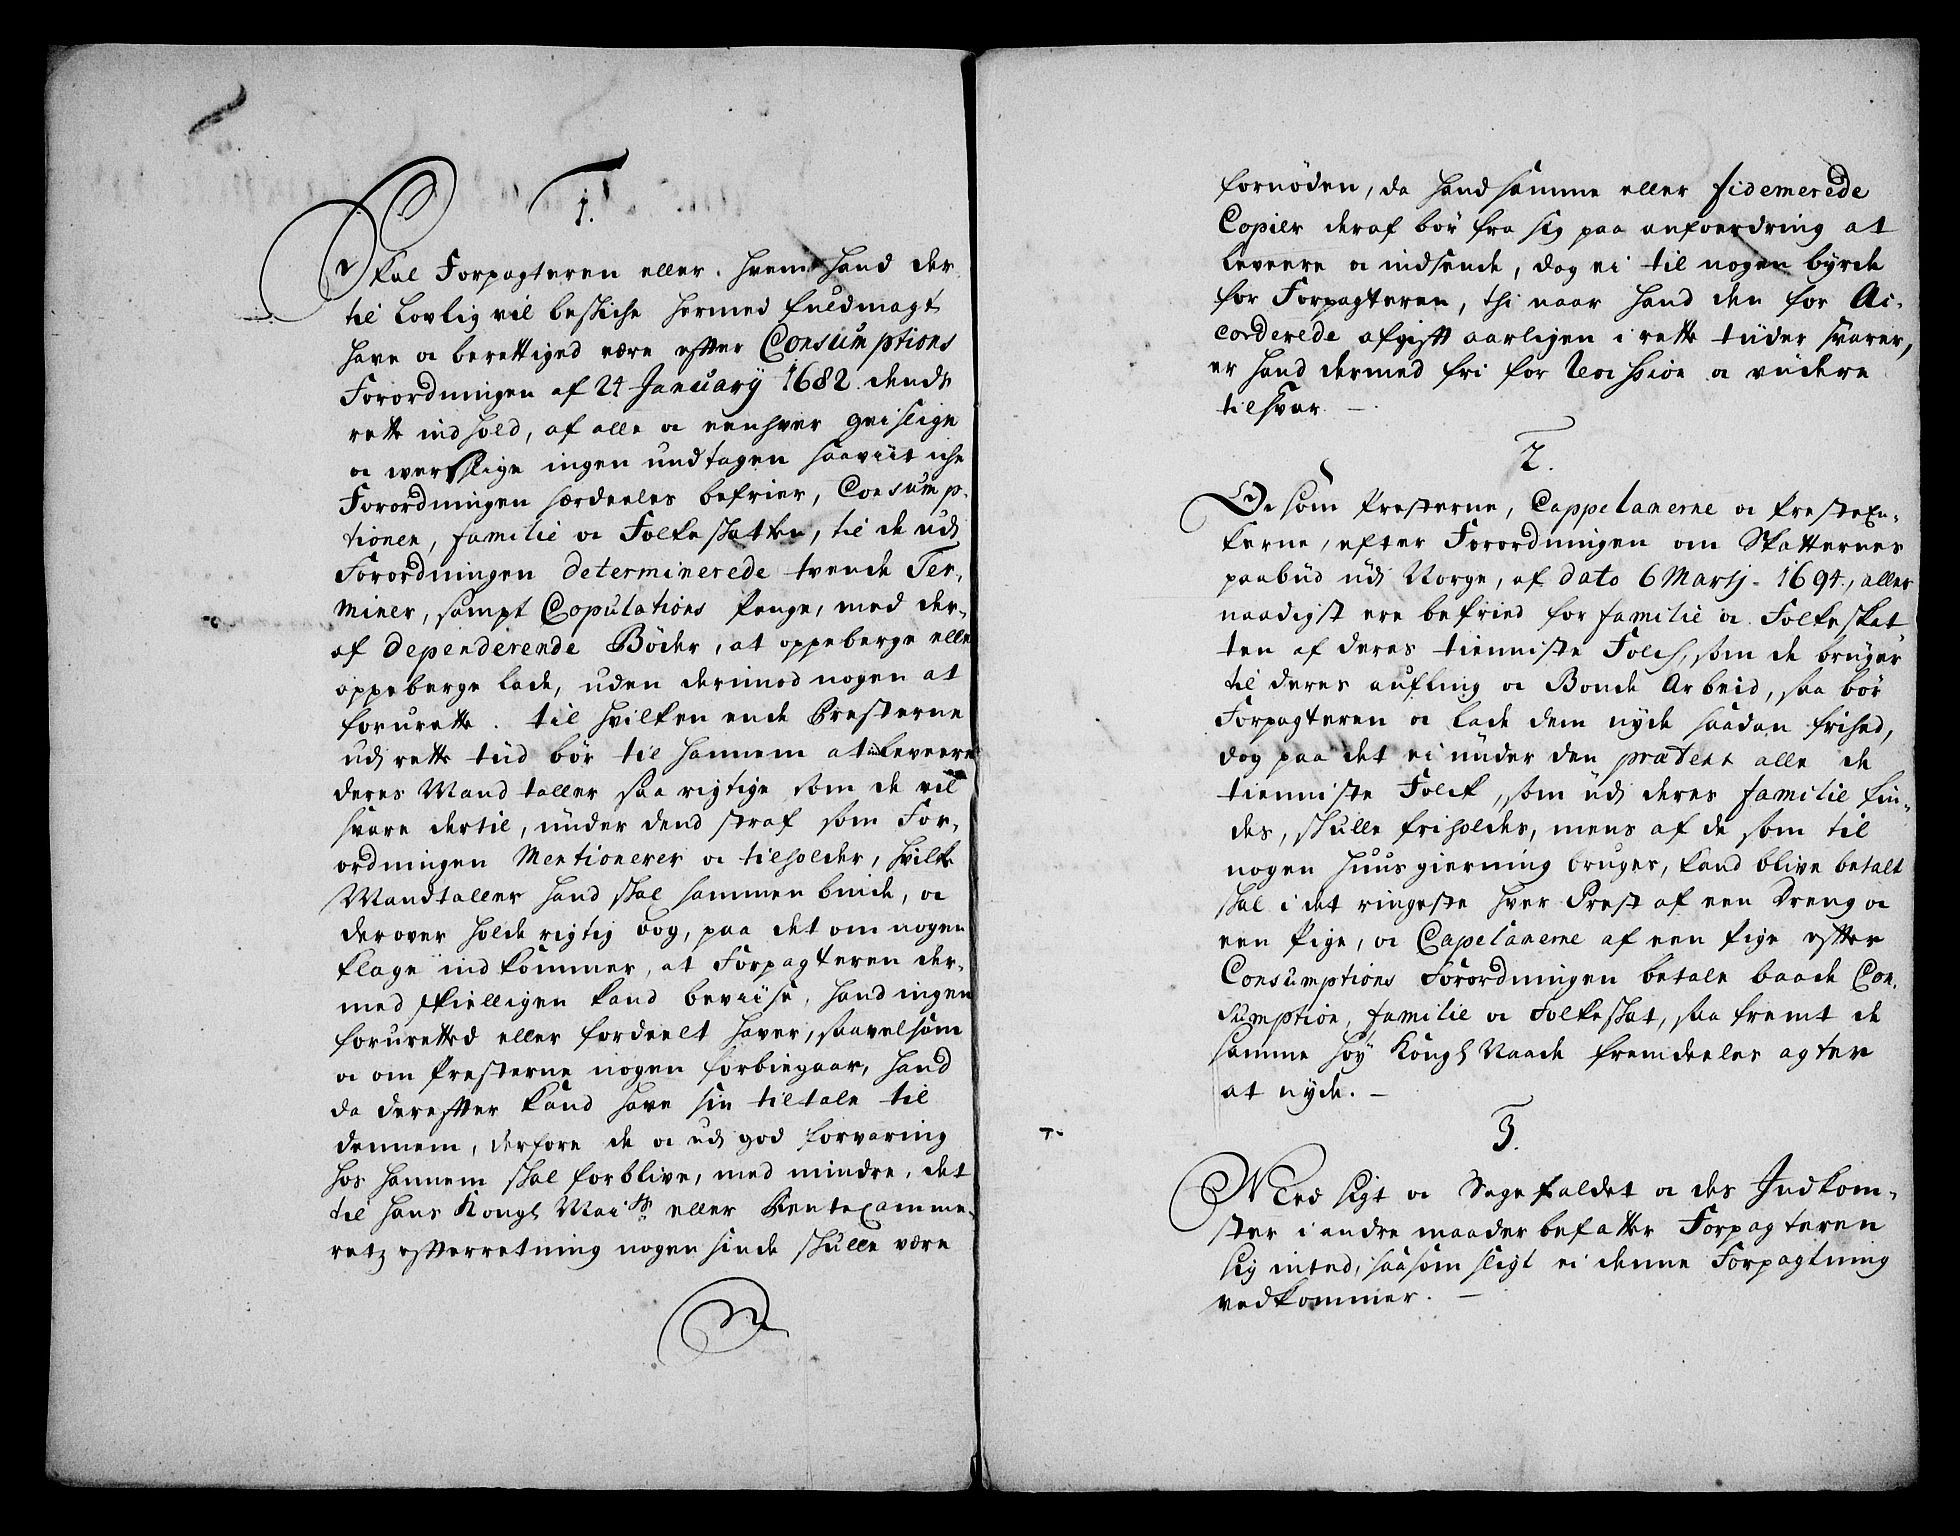 1.
Skal Forpagteren eller hvem hand der
til lovlig vil beskiche hermed fuldmagt
have oc berettiged være efter Consumptions
Forordningen af 24 January 1682 dends
rette indhold, af alle oc eenhver geislige
oc werslige ingen undtagen saaviit iche
Forordningen særdeeles befrier, Consump-
tionen, familie oc Folkeskatten, til de udj
Forordningen determinerede tvende Ter-
miner, sampt Copulations Penge, med der-
af dependerende Bøder, at oppeberge eller
oppeberge lade, uden derimod nogen at
forurette. til hvilken ende Presterne
udj rette tiid bør til hannem at leveere
deres Mandtaller saa rigtige som de vil
svare dertil, under dend straf som For-
ordningen Mentionerer oc tilholder, hvilke
Mandtaller hand skal sammen binde, oc
derover holde rigtig bog, paa det om nogen
klage indkommer, at Forpagteren der-
med skielligen kand beviise, hand ingen
foruretted eller fordeelt haver, saavelsom
oc om Presterne nogen forbiegaar, hand
da derefter kand have sin tiltale til
dennem, derfore de oc udj god forvaring
hos hannem skal forblive, med mindre, det
til hans Kongl Maits eller Rentecamme-
retz efterretning nogensinde skulle være
fornøden, da hand samme eller fidemerede
Copier deraf bør fra sig paa anfoerdring at
levere oc indsende, dog ei til nogen byrde
for Forpagteren, thi naar hand den for Ac-
corderede afgift aarligen i rette tiider svarer,
er hand dermed fri for Revision oc videre
tilsvar. —
2.
Oc som Presterne, Cappelanerne oc Presten-
kerne, efter Forordningen om Skatternes
paabud udj Norge, af dato 6 Martj 1694, aller
naadigst ere befried for familie oc Folkeskat
ten af deres tienniste Folch, som de bruger
til deres aufling oc Bonde Arbeid, saa bør
Forpagteren oc lade dem nyde saadan frihed,
dog paa det ei under den prætext alle de
tienniste Folck, som udj deres familie fin-
des, skulle friholdes, mens af de som til
nogen huusgierning bruges, kand blive betalt
skal i det ringeste hver Prest af een dreng oc
een Pige, oc Capelanerne af een Pige efter
Consumptions Forordningen betale baade Con-
sumption, familie oc Folkeskat, saa fremt de
samme høy Kongl Naade fremdeeles agter
at nyde. —
3.
Med sigt oc Sagefaldet oc des Indkom-
ster i andre maader befatter Forpagteren
sig inted, saasom sligt ei denne Forpagtning
vedkommer. —